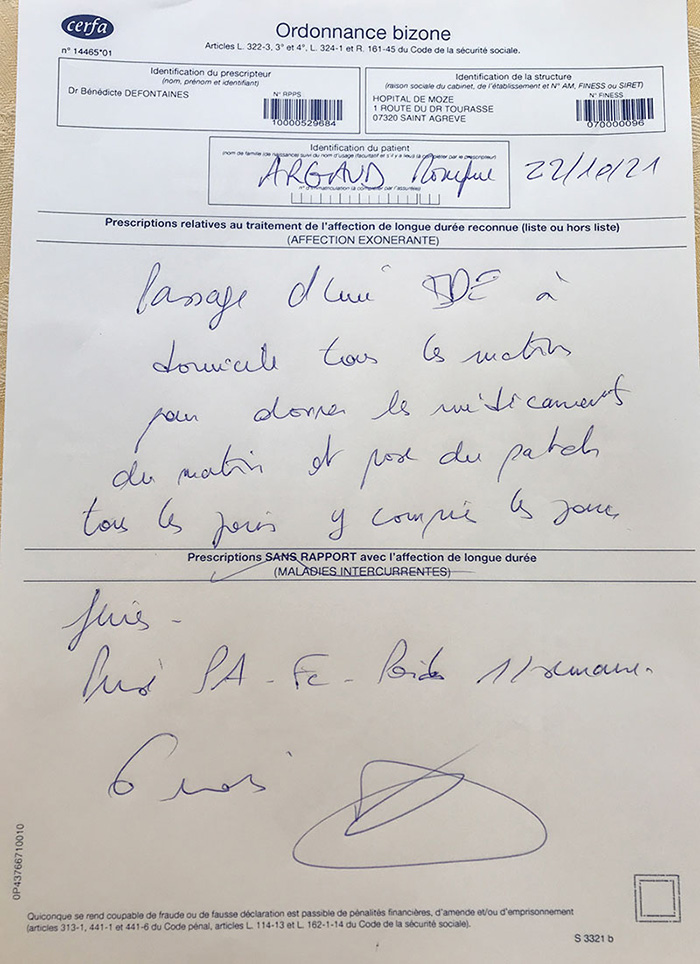 cerfa
n° 14465*01
Ordonnance bizone
Articles L. 322-3, 3° et 4°, L. 324-1 et R. 161-45 du Code de la sécurité sociale.
Identification du prescripteur
(nom, prénom et identifiant)
Dr Bénédicte DEFONTAINES
N° RPPS
10000529684
Identification de la structure
(raison sociale du cabinet, de l'établissement et N° AM, FINESS ou SIRET)
HOPITAL DE MOZE
1 ROUTE DU DR TOURASSE
07320 SAINT AGREVE
N° FINESS
070000096
Identification du patient
(nom de famille (de naissance) suivi du nom d'usage (facultatif et s'il y a lieu) (à compléter par le prescripteur)
ARGAUD 22/10/21
n° d'immatriculation (à compléter par l'assuré(e)
Prescriptions relatives au traitement de l'affection de longue durée reconnue (liste ou hors liste)
(AFFECTION EXONERANTE)
Passage d'une IDE à
domicile tous les matins
pour donner les médicaments
du matin et pose du patch
tous les jours y compris les jours
Prescriptions SANS RAPPORT avec l'affection de longue durée
(MALADIES INTERCURRENTES)
fériés -
Prise PA - Fc - Poids 1/semaine.
6 mois
0P43766710010
Quiconque se rend coupable de fraude ou de fausse déclaration est passible de pénalités financières, d'amende et/ou d'emprisonnement
(articles 313-1, 441-1 et 441-6 du Code pénal, articles L. 114-13 et L. 162-1-14 du Code de la sécurité sociale).
S 3321 b